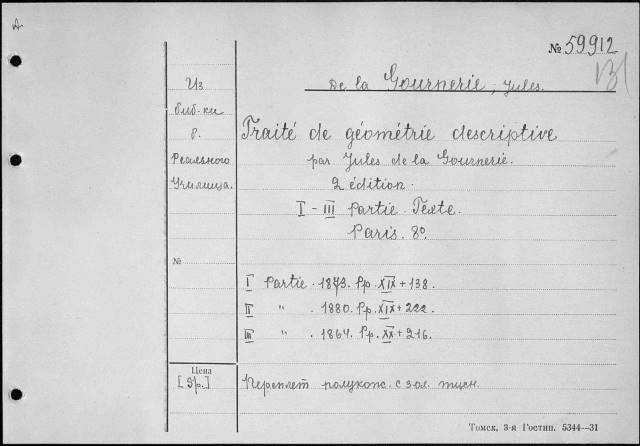 № 59912
De la Gournerie, Jules.
Из
биб-ки
б.
Реального
Училища.
Traité de géométrie descriptive
par Jules de la Gournerie.
2 édition.
I - III Partie. Texte.
Paris. 8º.
№
I Partie. 1873. Pp. XIX + 138.
II " . 1880. Pp. XIX + 222.
III " . 1864. Pp. XX + 216.
Цена
Переплет полукож. с зол. тисн.
Томск, 3-я Гостип. 5344—31